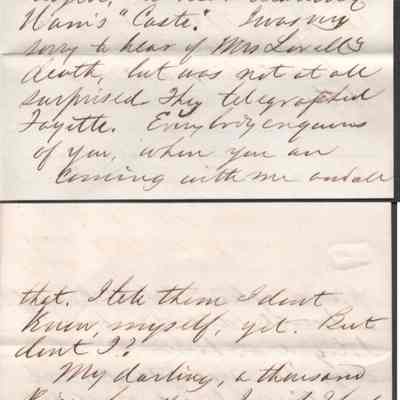 "Caste." I was very
sorry to hear of Mrs Lovell's
death, but was not at all
surprised. They telegraphed
Fayette. Everybody enquires
of you, when you are
coming with me and all
that. I tell them I dont
know, myself, yet. But
dont I?
My darling, a thousand